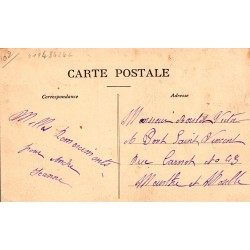 CARTE POSTALE
Correspondance
Adresse
Mille Remerciements
pour André
Jeanne
Monsieur
à Pont Saint Vincent
Rue Carnot no 43
Meurthe et Moselle